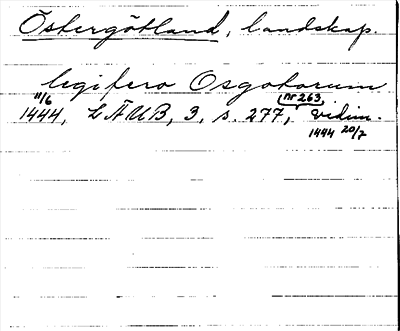 Östergötland, landskap.
legifero Osgotorum
11/6 nr 263,
1444, LÄUB, 3, s. 277, vidim.
1444 20/7